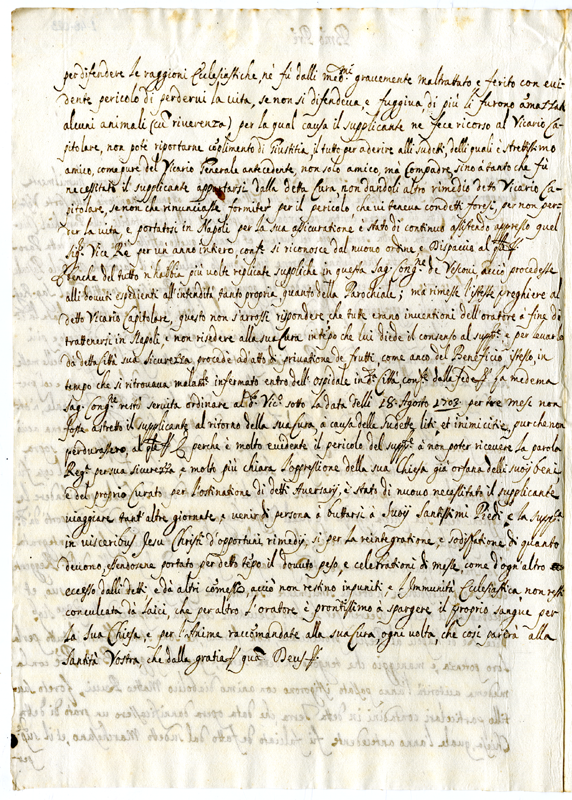 per difendere le raggioni Ecclesiastiche, nè fù dalli med.mi gravemente maltrattato e ferito con evi-
dente pericolo di perdervi la vita, se non si difendeva, e fuggiva, di più li furono amazzati
alcuni animali (cũ riverenza) per la qual causa il supplicante ne fece ricorso al Vicario Ca-
pitolare, non potè riportarne cõplimento di Giustitia, il tutto per aderire alli sudetti, delli quali è strettissimo
amico, come pure del Vicario Generale antecedente, non solo amico, ma Compadre, sino à tanto che fù
necessitato il supplicante appartarsi dalla detta Cura, non dandoli altro rimedio detto Vicario Ca-
pitolare, se non che rinunciasse formiter per il pericolo che vi teneva
rer la vita, e portatosi in Napoli per la sua assicuratione è stato di continuo assistendo appresso quel
Sig.r Vice Re per un anno intiero, conf.e si riconosce dal nuovo ordine, e Dispaccio al
benche del tutto n'habbia più volte replicate suppliche in questa Sag. Cong.ne de Vescovi, acciò procedesse
alli dovuti espedienti all'indennità tanto propria, quanto della Parochiale; mà rimesse l'istesse preghiere al
detto Vicario Capitolare, questo non s'arrossì rispondere che tutte erano inventioni dell'oratore à fine di
trattenersi in Napoli, e non risedere alla sua Cura in tẽpo che lui diede il consenso al supp.te e per levarlo
da detta Città sua sicurezza procede ad atto di privatione de frutti come anco del Beneficio istesso, in
tempo che si ritrovava malato infermato entro dell'ospidale in d.a Città, conf.e dalla fede la medema
Sag. Cong.ne restò servita ordinare al d.o Vic.o sotto la data delli 18 Agosto 1703 per tre mesi non
fosse astretto il supplicante al ritorno della sua Cura, à causa delle sudette liti, et inimicitie, purche non
perdurassero, al perche è molto evidente il pericolo del supp.te à non poter ricevere la parola
Reg.a per sua sicurezza, e molto più chiara l'oppressione della sua Chiesa già orfana delli suoij beni
e del proprio Curato per l'ostinatione di detti Aversarij, è stato di nuovo necessitato il supplicante
viaggiare tant'altre giornate, e venir di persona à buttarsi à Suoij Santissimi Piedi, e la supp.ca
in visceribus Jesu Christi d'opportuni rimedij, sì per la reintegratione, e sodisfatione di quanto
devono, essendone portato per detto tẽpo il dovuto peso, e celebrationi di messe, come d'ogn'altro
eccesso dalli detti e da altri cõmesso, acciò non restino impuniti, e l'Immunità Ecclesiastica non resti
conculcata da Laici, che per altro l'oratore è prontissimo à spargere il proprio sangue per
la sua Chiesa, e per l'Anime raccõmandate alla sua Cura, ogni volta, che così parerà alla
Santità Vostra, che dalla gratia quã Deus